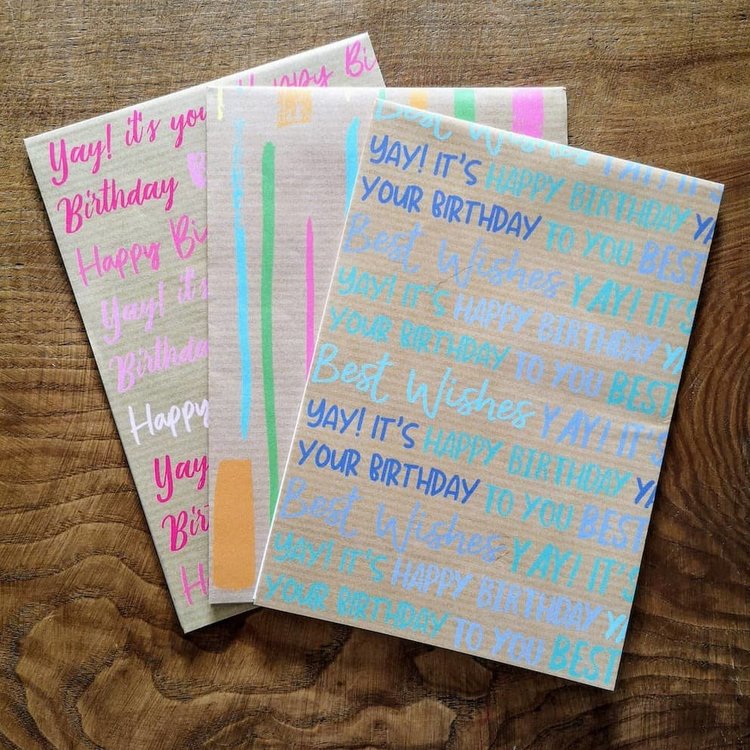 Yay! it's you Happy Bi
Birthday
Happy Bi
Yay! it's
Birthda
Happy
Yay
Bir
H
Best Wishes YAY! IT'S
YAY! IT'S HAPPY BIRTHDAY YA
YOUR BIRTHDAY TO YOU BEST
Best Wishes YAY! IT'S
YAY! IT'S HAPPY BIRTHDAY YA
YOUR BIRTHDAY TO YOU BEST
Best Wishes YAY! IT'S
YAY! IT'S HAPPY BIRTHDAY YA
YOUR BIRTHDAY TO YOU BEST
Best Wishes YAY! IT'S
YAY! IT'S HAPPY BIRTHDAY YA
YOUR BIRTHDAY TO YOU BEST